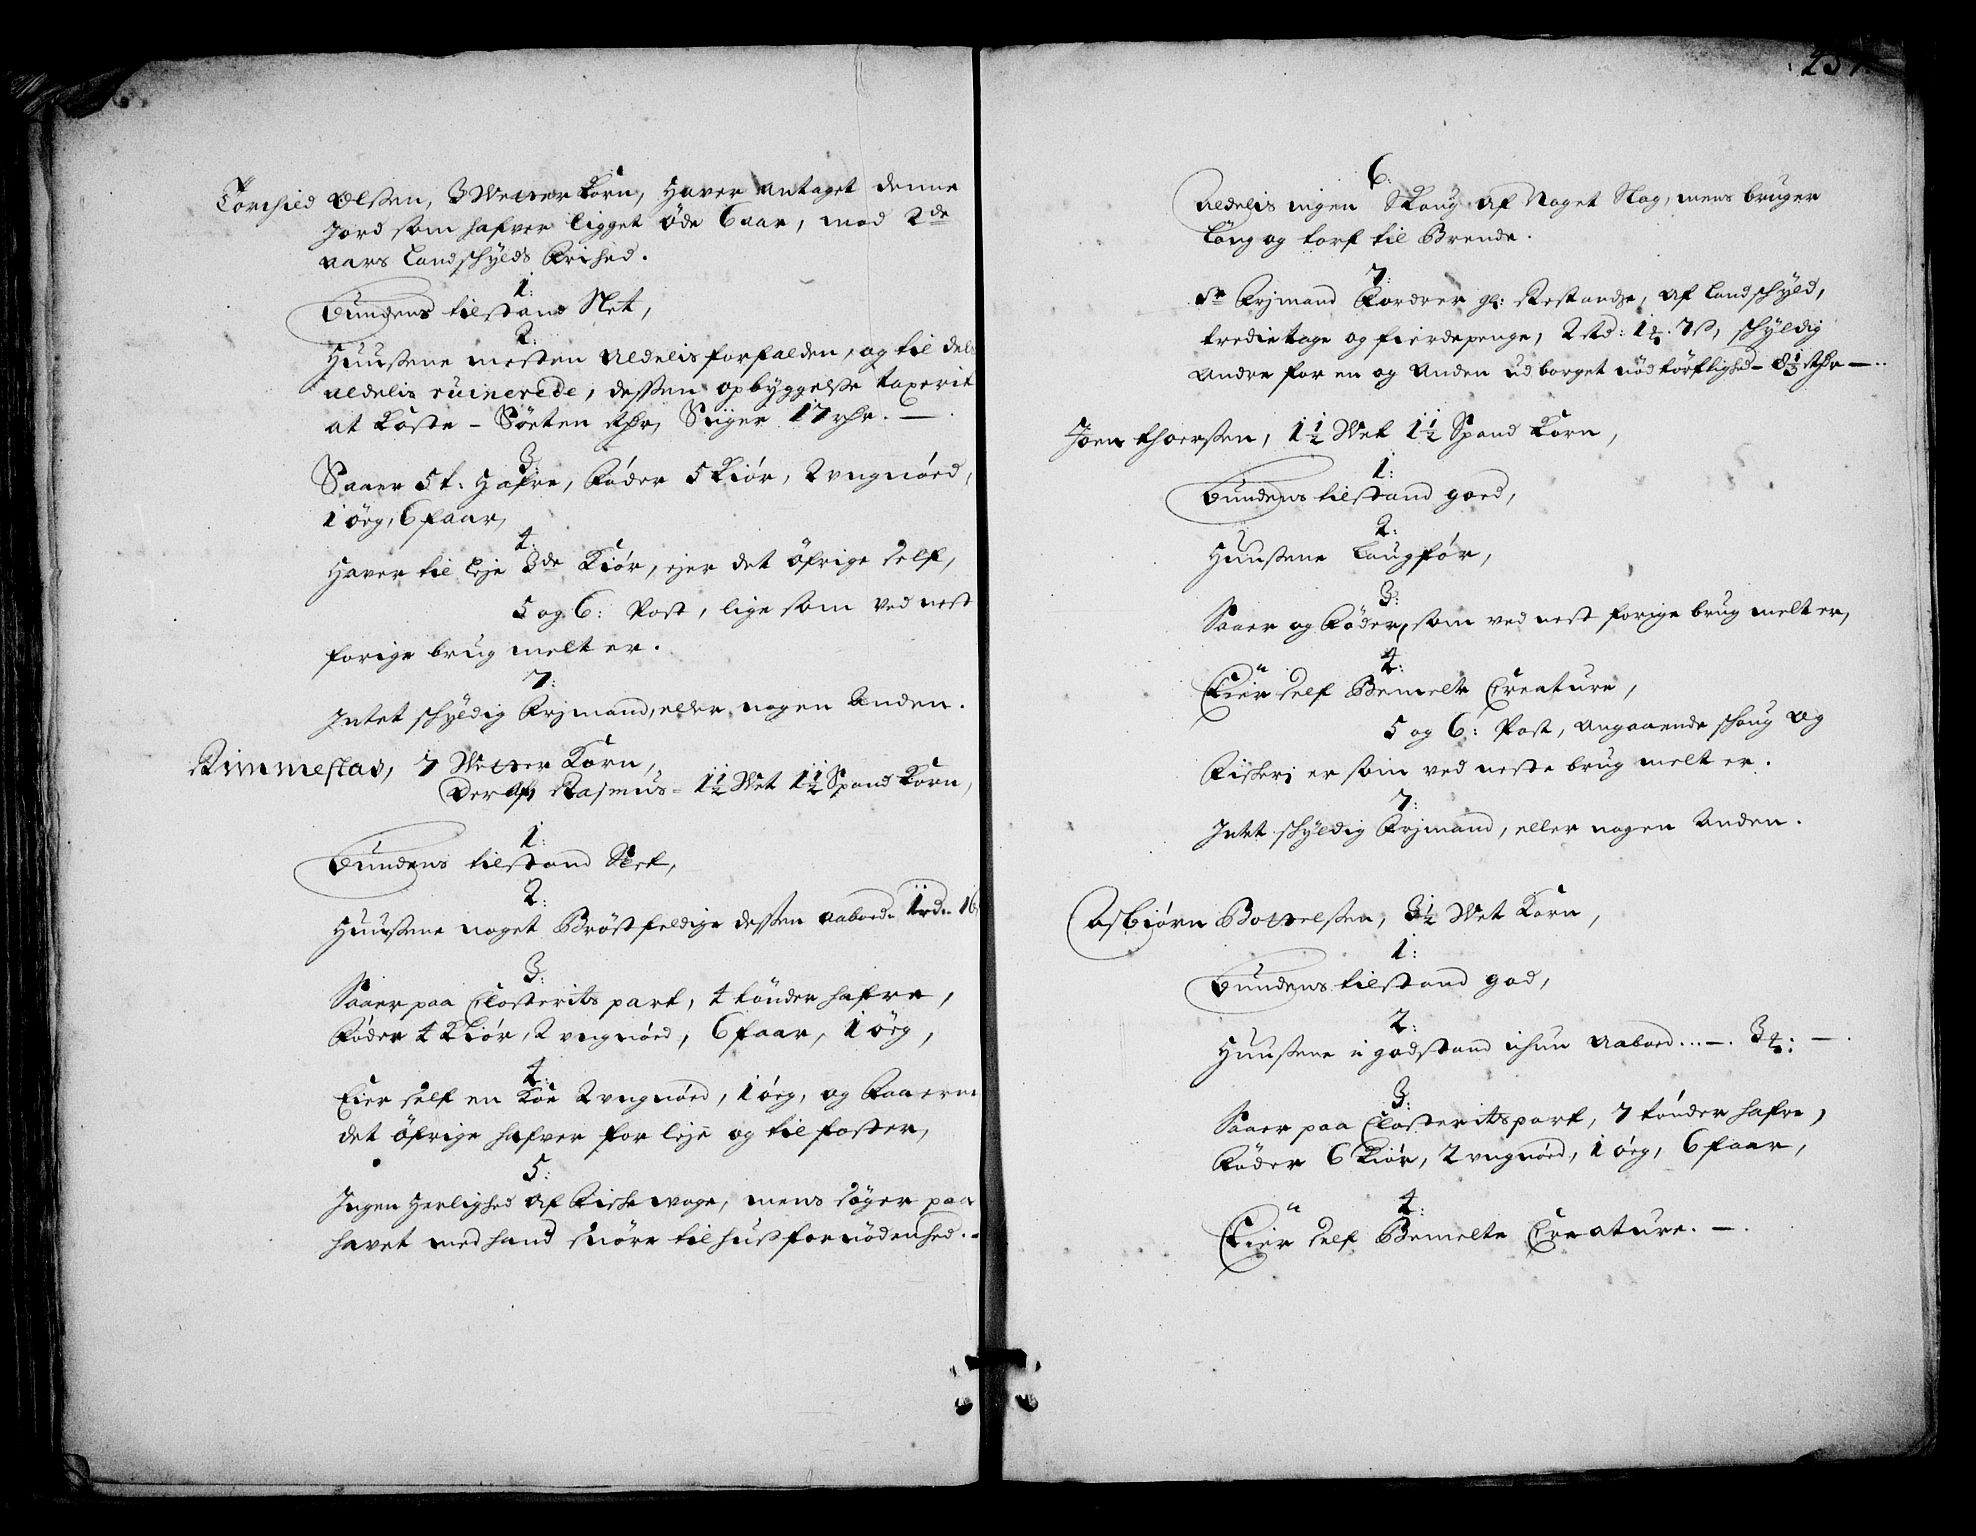 Torchild Olssen, 3 Wetter Korn, Hawer antaget denne
Jord som hafver ligget öde 6 aar, mod 2de
aars Landschylds Frihed.
1:
Bundens tilstand Slet,
2:
Huussene mesten aldelis forfalden, og til dels
aldelis ruinerede, dessen opbyggelsse taxerit
at koste – Söeten rdr, Siger 17 rdr. —
3:
Saaer 5 t. Hafre, Föder 5 Kiör, 2 ungnöed,
1 öeg, 6 faar,
4:
Hawer til leje 3de Kiör, ejer det öfrige self,
5 og 6: Post, lige som ved nest
forige brug melt er.
7:
Intet schyldig Frjmand, eller nogen Anden.
Rimmestad, 7 Wetter Korn,
Der af Rasmus – 1½ Wet 1½ Spand Korn,
1:
Bundens tilstand Slet,
2:
Huussene noget Bröstfeldige dessen aaboed 1 rd. 16
3:
Saaer paa Closterits part, 4 tönder hafre,
Föder 4 Kiör, 2 ungnöed, 6 faar, 1 öeg,
4:
Eier self en Koe 2 ungnöed, 1 öeg, og Faaerne
det öfrige hafver for leje og til foster,
5:
Ingen Herlighed af Fiskewoge, mens söger paa
havet med hand snöre til huss fornödenhed. –
6:
Aldelis ingen Skoug af Noget Slag, mens bruger
Löng og torf til Brende.
7:
Sr Frjmand Fordrer gl: Restandse, af Landschyld,
tredietage og fierdepenge, 2 rd: 1 ₰. 7 ß, schyldig
Andre for en og Anden udborget nödtörftighed – 8⅓ rdr —
Joen thoerssen, 1½ Wet 1½ Spand Korn,
1:
Bundens tilstand goed,
2:
Huussene Laugför,
3:
Saaer og Föder, som ved nest forige brug melt er,
4:
Eier self Bemelte Creature,
5 og 6: Post, Angaaende schoug og
Fiskeri er som ved neste brug melt er.
7:
Intet schyldig Frjmand, eller nogen Anden.
Asbiörn Bottelssen, 3½ Wet Korn,
1:
Bundens tilstand god,
2:
Huussene i godstand uhun Aaboed ... —. 3 ₰: —.
3:
Saaer paa Closterits part, 7 tönder hafre,
Föder 6 Kiör, 2 ungnöed, 1 öeg, 6 faar,
4:
Eier self Bemelte Creature. —.